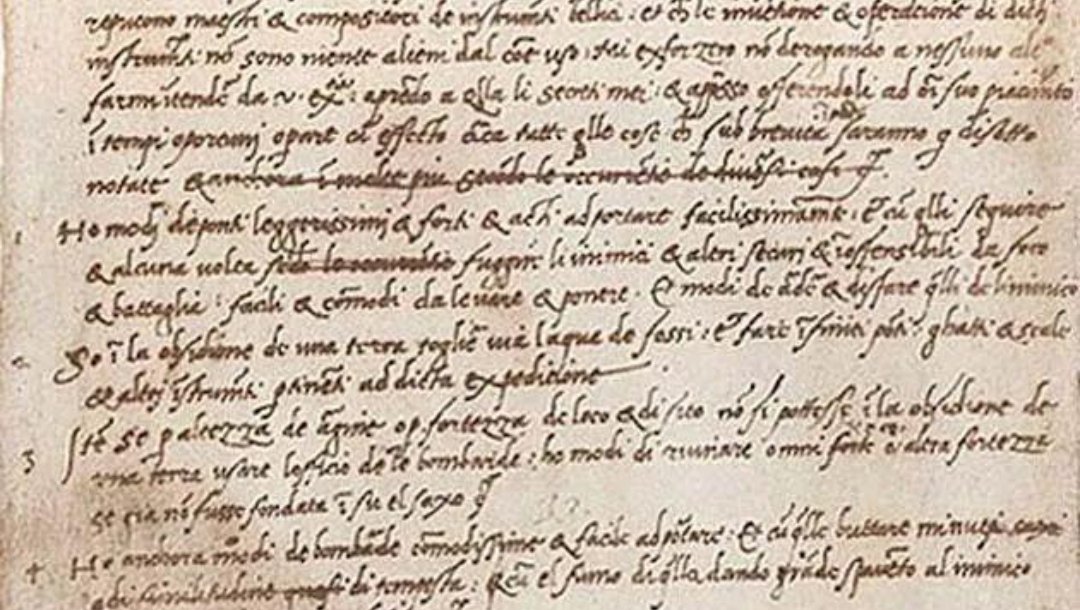 reputono maestri & compositori de instrumenti bellici: et ch le inventione & operatione di dicti
instrumẽti nõ sono niente alieni dal cõe uso: Mi exforzero nõ derogando a nessuno altro
farmi intendẽ da v. exa: aprẽdo a qlla li secreti mei: & apresso offerendoli ad õi suo piacimẽto
ĩ tempi oportuni operare cũ effecto circa tutte qlle cose ch sub brevita saranno q disotto
notate & anchora ĩ molte piu secõdo le occurrẽtie de diuersi casi
1 Ho modi de ponti leggerissimi & forti & acti ad portare facilissimamẽte: et cũ qlli seguire
& alcuna volta secõdo le occurrẽtie fuggire li inimici & altri securi & ĩoffensibili da foco
& battaglia: facili & cõmodi da levare & ponere. Et modi de ardẽ & disfare qlli de linimico
2 So ĩ la obsidione de una terra toglier via laqua de fossi: et fare ĩfiniti põti ghatti & scale
& altri ĩstrumẽti ptinẽti ad dicta expeditione
3 Itẽ se p altezza de argine o p fortezza de loco & di sito nõ si potesse ĩ la obsidione de
una terra usare lofficio de le bombarde: ho modi di ruinare omni forte o altra fortezza
se gia nõ fusse fondata ĩ su el saxo
4 Ho anchora modi de bombarde cõmodissime & facile ad portare: Et cũ qlle buttare minuti
adi similitudine di tempesta: & cũ el fumo di qlla dando grãde spavẽto al inimico